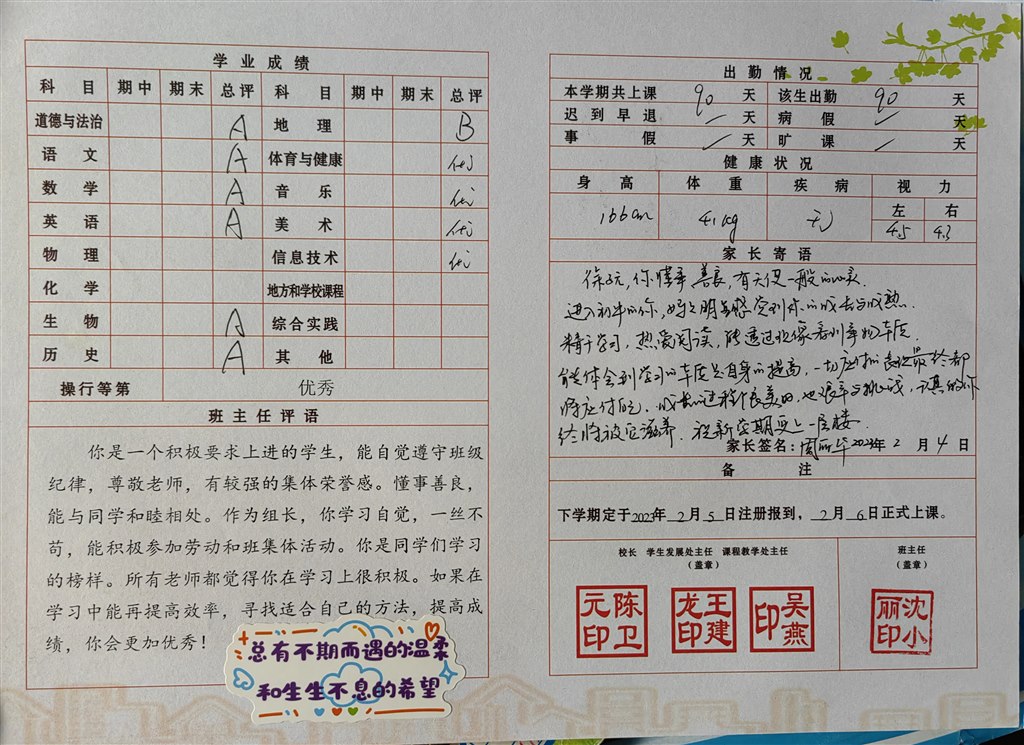 学业成绩
科目 期中 期末 总评 科目 期中 期末 总评
道德与法治 A 地理 B
语文 A 体育与健康 优
数学 A 音乐 优
英语 A 美术 优
物理 信息技术 优
化学 地方和学校课程
生物 A 综合实践
历史 A 其他
操行等第 优秀
班主任评语
你是一个积极要求上进的学生，能自觉遵守班级
纪律，尊敬老师，有较强的集体荣誉感。懂事善良，
能与同学和睦相处。作为组长，你学习自觉，一丝不
苟，能积极参加劳动和班集体活动。你是同学们学习
的榜样。所有老师都觉得你在学习上很积极。如果在
学习中能再提高效率，寻找适合自己的方法，提高成
绩，你会更加优秀！
总有不期而遇的温柔
和生生不息的希望
出勤情况
本学期共上课 90 天 该生出勤 90 天
迟到早退 / 天 病假 / 天
事假 / 天 旷课 / 天
健康状况
身高 体重 疾病 视力
左 右
166cm 41kg 无 4.5 4.3
家长寄语
你懂事善良，有天使一般的心灵.
进入初中的你，明显感受到你的成长与成熟.
精于学习，热爱阅读，能透过现像看到事物本质.
能体会到学习的本质是自身的提高，一切应付的 最终都
将应付自己. 成长的过程很美好，也艰辛与挑战，认真的你
终将被它滋养. 祝新学期更上一层楼.
家长签名： 2023年 2 月 4 日
备注
下学期定于2023年 2 月 5 日注册报到， 2 月 6 日正式上课。
校长 学生发展处主任 课程教学处主任 班主任
（盖章） （盖章）
陈卫元印 王建龙印 吴燕印 沈小丽印